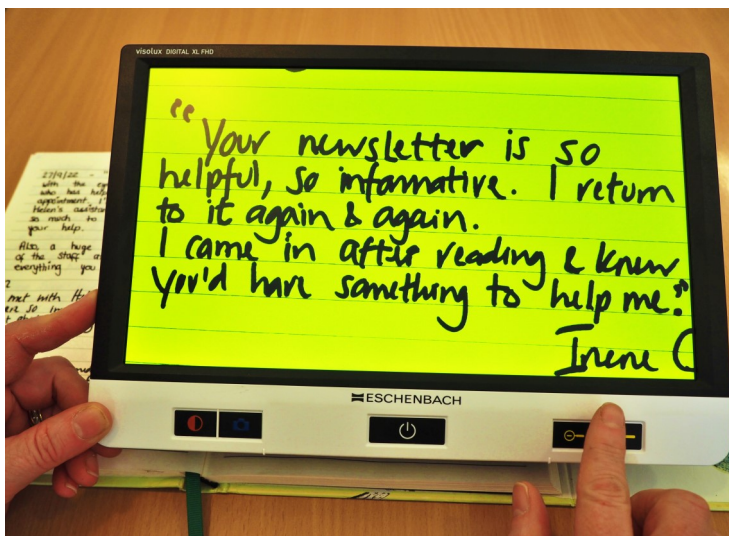 visolux DIGITAL XL FHD
"Your newsletter is so
helpful, so informative. I return
to it again & again.
I came in after reading & knew
you'd have something to help me."
Irene C
ESCHENBACH
27/9/22
with the
who has
appointment, I'
Helen's
so much to
your help.
Also, a huge
of the staff
everything you
met with